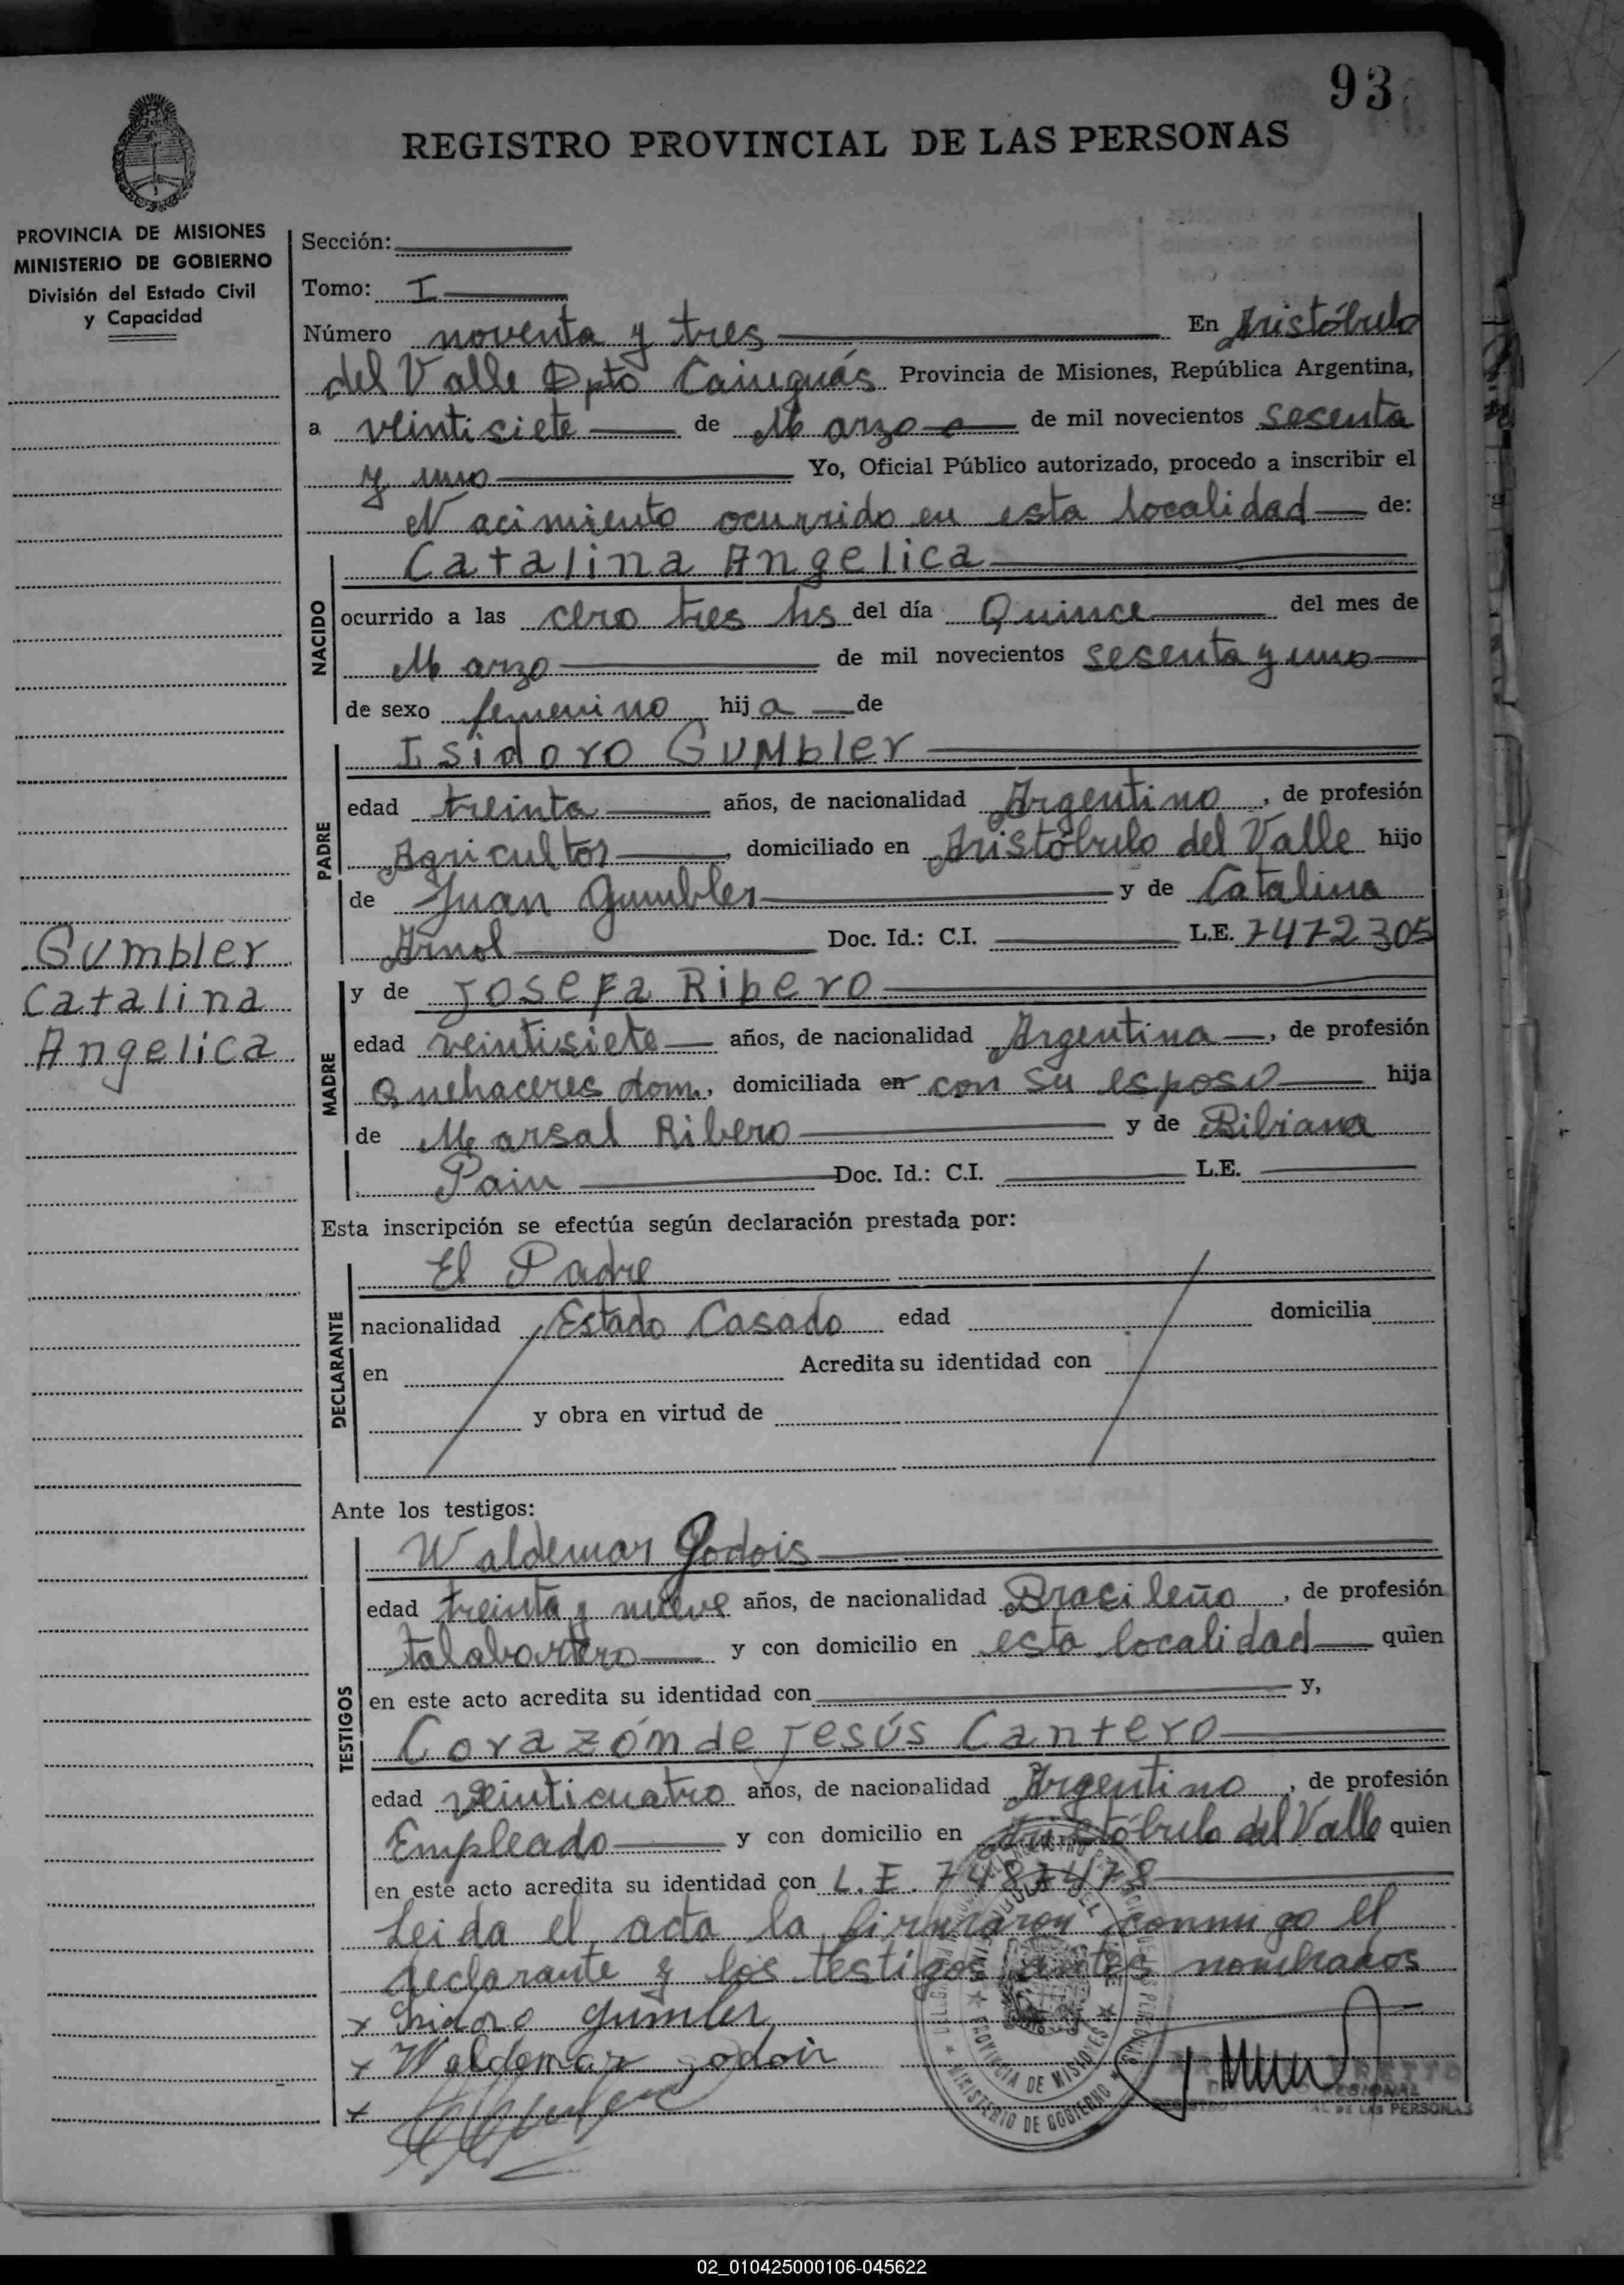 93
REGISTRO PROVINCIAL DE LAS PERSONAS
PROVINCIA DE MISIONES
MINISTERIO DE GOBIERNO
División del Estado Civil
y Capacidad
Sección:
Tomo: I
Número noventa y tres En Aristóbulo
del Valle Dpto Cainguás Provincia de Misiones, República Argentina,
a veintisiete de Marzo de mil novecientos sesenta
y uno Yo, Oficial Público autorizado, procedo a inscribir el
Nacimiento ocurrido en esta localidad de:
NACIDO
Catalina Angelica
ocurrido a las cero tres hs del día Quince del mes de
Marzo de mil novecientos sesenta y uno
de sexo femenino hija de
PADRE
Isidoro Gumbler
edad treinta años, de nacionalidad Argentino, de profesión
Agricultor, domiciliado en Aristóbulo del Valle hijo
de Juan Gumbler y de Catalina
Arnol Doc. Id.: C.I. L.E. 7472305
Gumbler
Catalina
Angelica
MADRE
y de Josefa Ribero
edad veintisiete años, de nacionalidad Argentina, de profesión
Quehaceres dom., domiciliada en con su esposo hija
de Marsal Ribero y de Bibiana
Pain Doc. Id.: C.I. L.E.
Esta inscripción se efectúa según declaración prestada por:
DECLARANTE
El Padre
nacionalidad Estado Casado edad domicilia
en Acredita su identidad con
y obra en virtud de
Ante los testigos:
TESTIGOS
Waldemar Godois
edad treinta y nueve años, de nacionalidad Bracileño, de profesión
talabartero y con domicilio en esta localidad quien
en este acto acredita su identidad con y,
Corazón de Jesús Cantero
edad veinticuatro años, de nacionalidad Argentino, de profesión
Empleado y con domicilio en Aristóbulo del Valle quien
en este acto acredita su identidad con L.E. 7487478
Leida el acta la firmaron conmigo el
declarante y los testigos antes nombrados
x Isidoro Gumler
x Waldemar Godois
x
PROVINCIA DE MISIONES
MINISTERIO DE GOBIERNO
REGIONAL
AL DE LAS PERSONAS
02_010425000106-045622